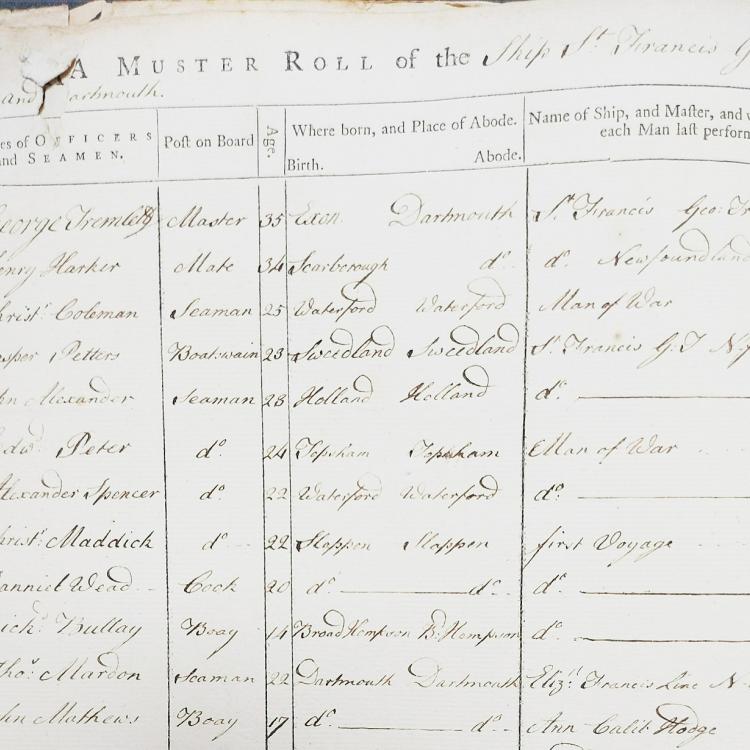 A MUSTER ROLL of the Ship St. Francis G
and Dartmouth.
es of OFFICERS and SEAMEN. Post on Board Age. Where born, and Place of Abode. Birth. Abode. Name of Ship, and Master, and w each Man last perform
George Tremlett Master 35 Exon Dartmouth St. Francis Geo: Tr
enry Harker Mate 34 Scarborough do. do. Newfoundland
hrist. Coleman Seaman 25 Waterford Waterford Man of War
esper Petters Boatswain 23 Sweedland Sweedland St. Francis G: T N: f
hn Alexander Seaman 23 Holland Holland do.
dwd. Peter do. 24 Topsham Topsham Man of War
Alexander Spencer do. 22 Waterford Waterford do.
hrist. Maddick do. 22 first Voyage
anniel Wead Cook 20 do. do. do.
ich. Bullay Boay 14 Broad Hempson B: Hempson do.
Tho.s Mardon Seaman 22 Dartmouth Dartmouth Eliz. Francis Line N
hn Mathews Boay 17 do. do. Ann Calib Hodge